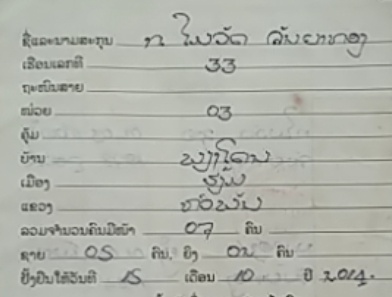 ຊື່ແລະນາມສະກຸນ ທ ໄພວັດ ລັນຍາທອງ
ເຮືອນເລກທີ 33
ຖະໜົນສາຍ
ໜ່ວຍ 03
ຄຸ້ມ
ບ້ານ
ເມືອງ ຊຳ
ແຂວງ ຫົວພັນ
ລວມຈຳນວນຄົນມີໜ້າ 07 ຄົນ
ຊາຍ 05 ຄົນ, ຍິງ 02 ຄົນ
ຢັ້ງຢືນໃຫ້ວັນທີ 15 ເດືອນ 10 ປີ 2014.